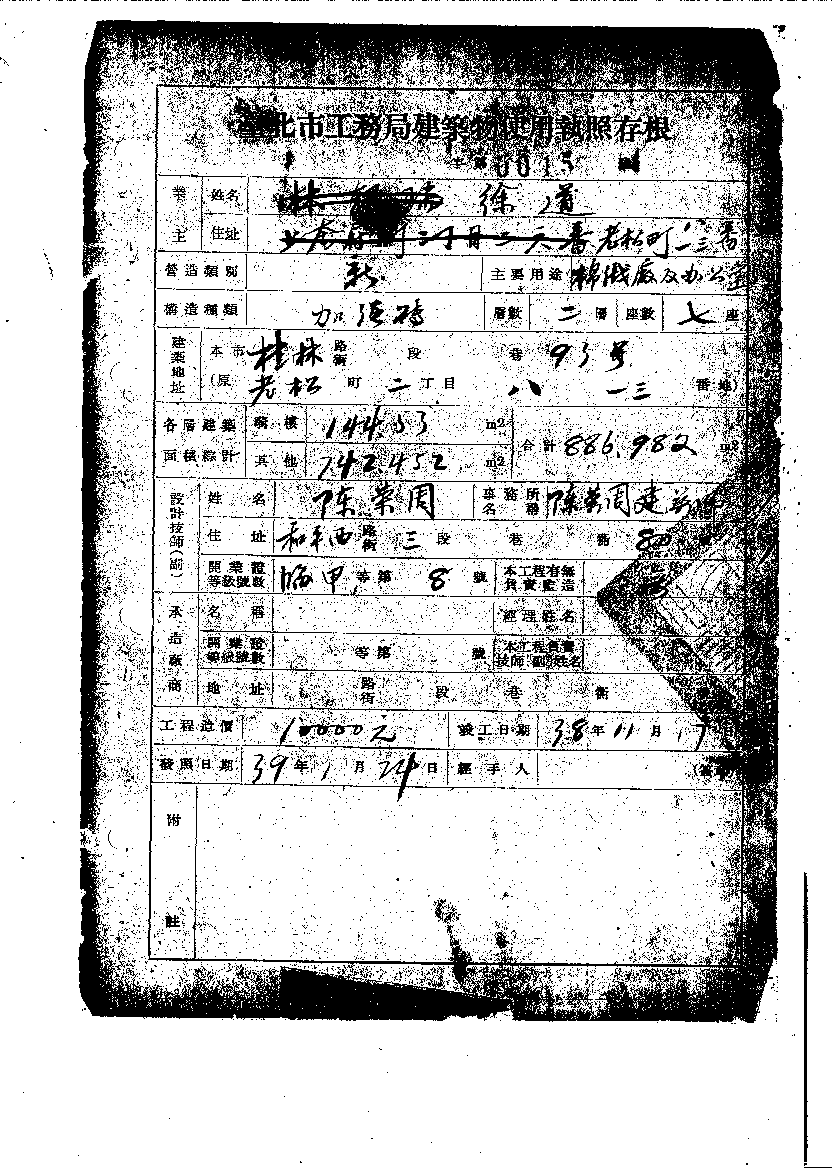 臺北市工務局建築物使用執照存根
字第0013號
業主 姓名 徐道
住址 老松町 八ノ一三番
營造類別 新 主要用途 棉織廠及办公室
構造種類 加强磚 層數 二層 座數 七座
建築地址 本市 桂林 路街 段 巷 93号
(原 老松 町 二丁目 八 一三 番地)
各層建築面積綜計 騎樓 144.53 m2 合計 886.982 m2
其他 742.452 m2
設計技師(副) 姓名 陈荣周 事務所名稱 陈荣周建築師
住址 和平西 路街 三段 巷 衖 80
開業證等級號數 臨甲等第 8 號 本工程有無負責監造
承造廠商 名稱 經理姓名
開業證等級號數 等第 號 本工程負責技師(副)姓名
地址 路街 段 巷 衖
工程造價 10000元 竣工日期 38年11月17日
發照日期 39年1月24日 經手人 (蓋章)
附註